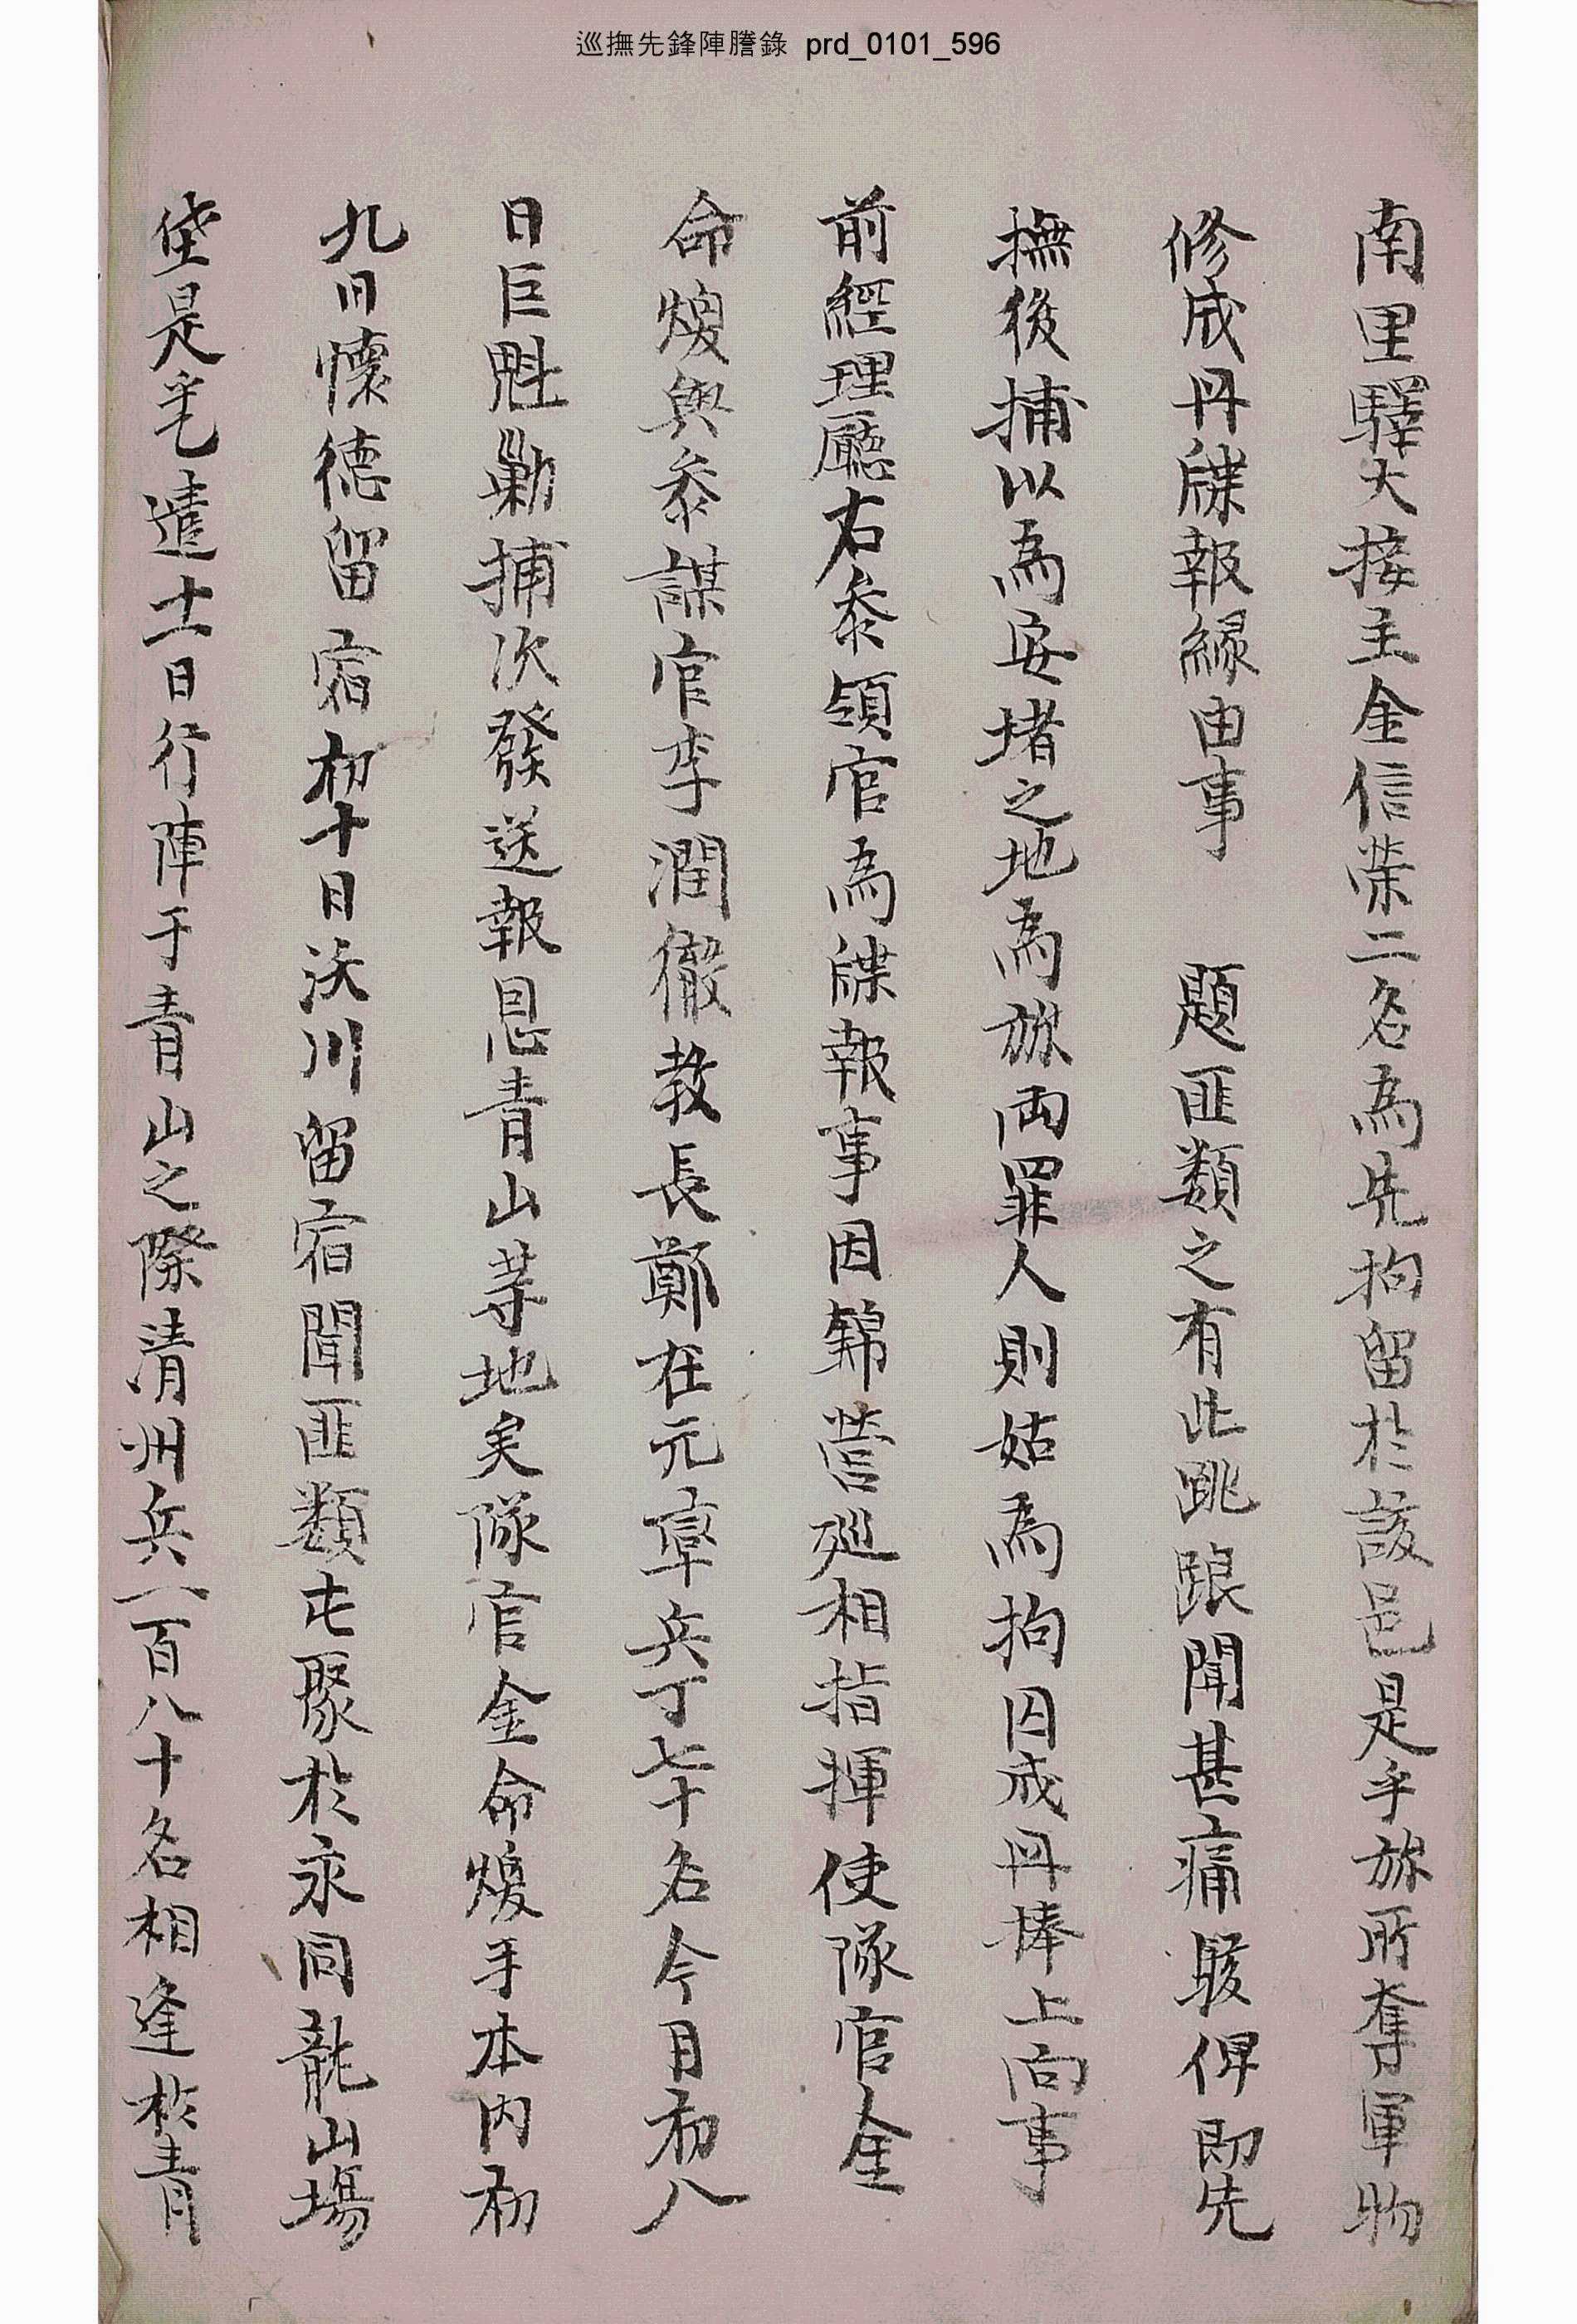 巡撫先鋒陣謄錄 prd_0101_596
南里驛大接主金信荣二名為先拘留於該邑是乎旀所奪軍物
修成丹牒報緣由事 題匪類之有此跳踉聞甚痛駭俾即先
撫後捕以為安堵之地為旀両罪人則姑為拘囚成丹捧上向事
前經理廳右叅領官為牒報事因錦營廵相指揮使隊官金
命煥與叅謀官李潤徹教長鄭在元率兵丁七十名今月初八
日巨魁勦捕次發送報恩青山等地矣隊官金命煥手本内初
九日懷德留宿初十日沃川留宿聞匪類屯聚於永同龍山場
垈是乎遣十一日行陣于青山之際清州兵一百八十名相逢於青